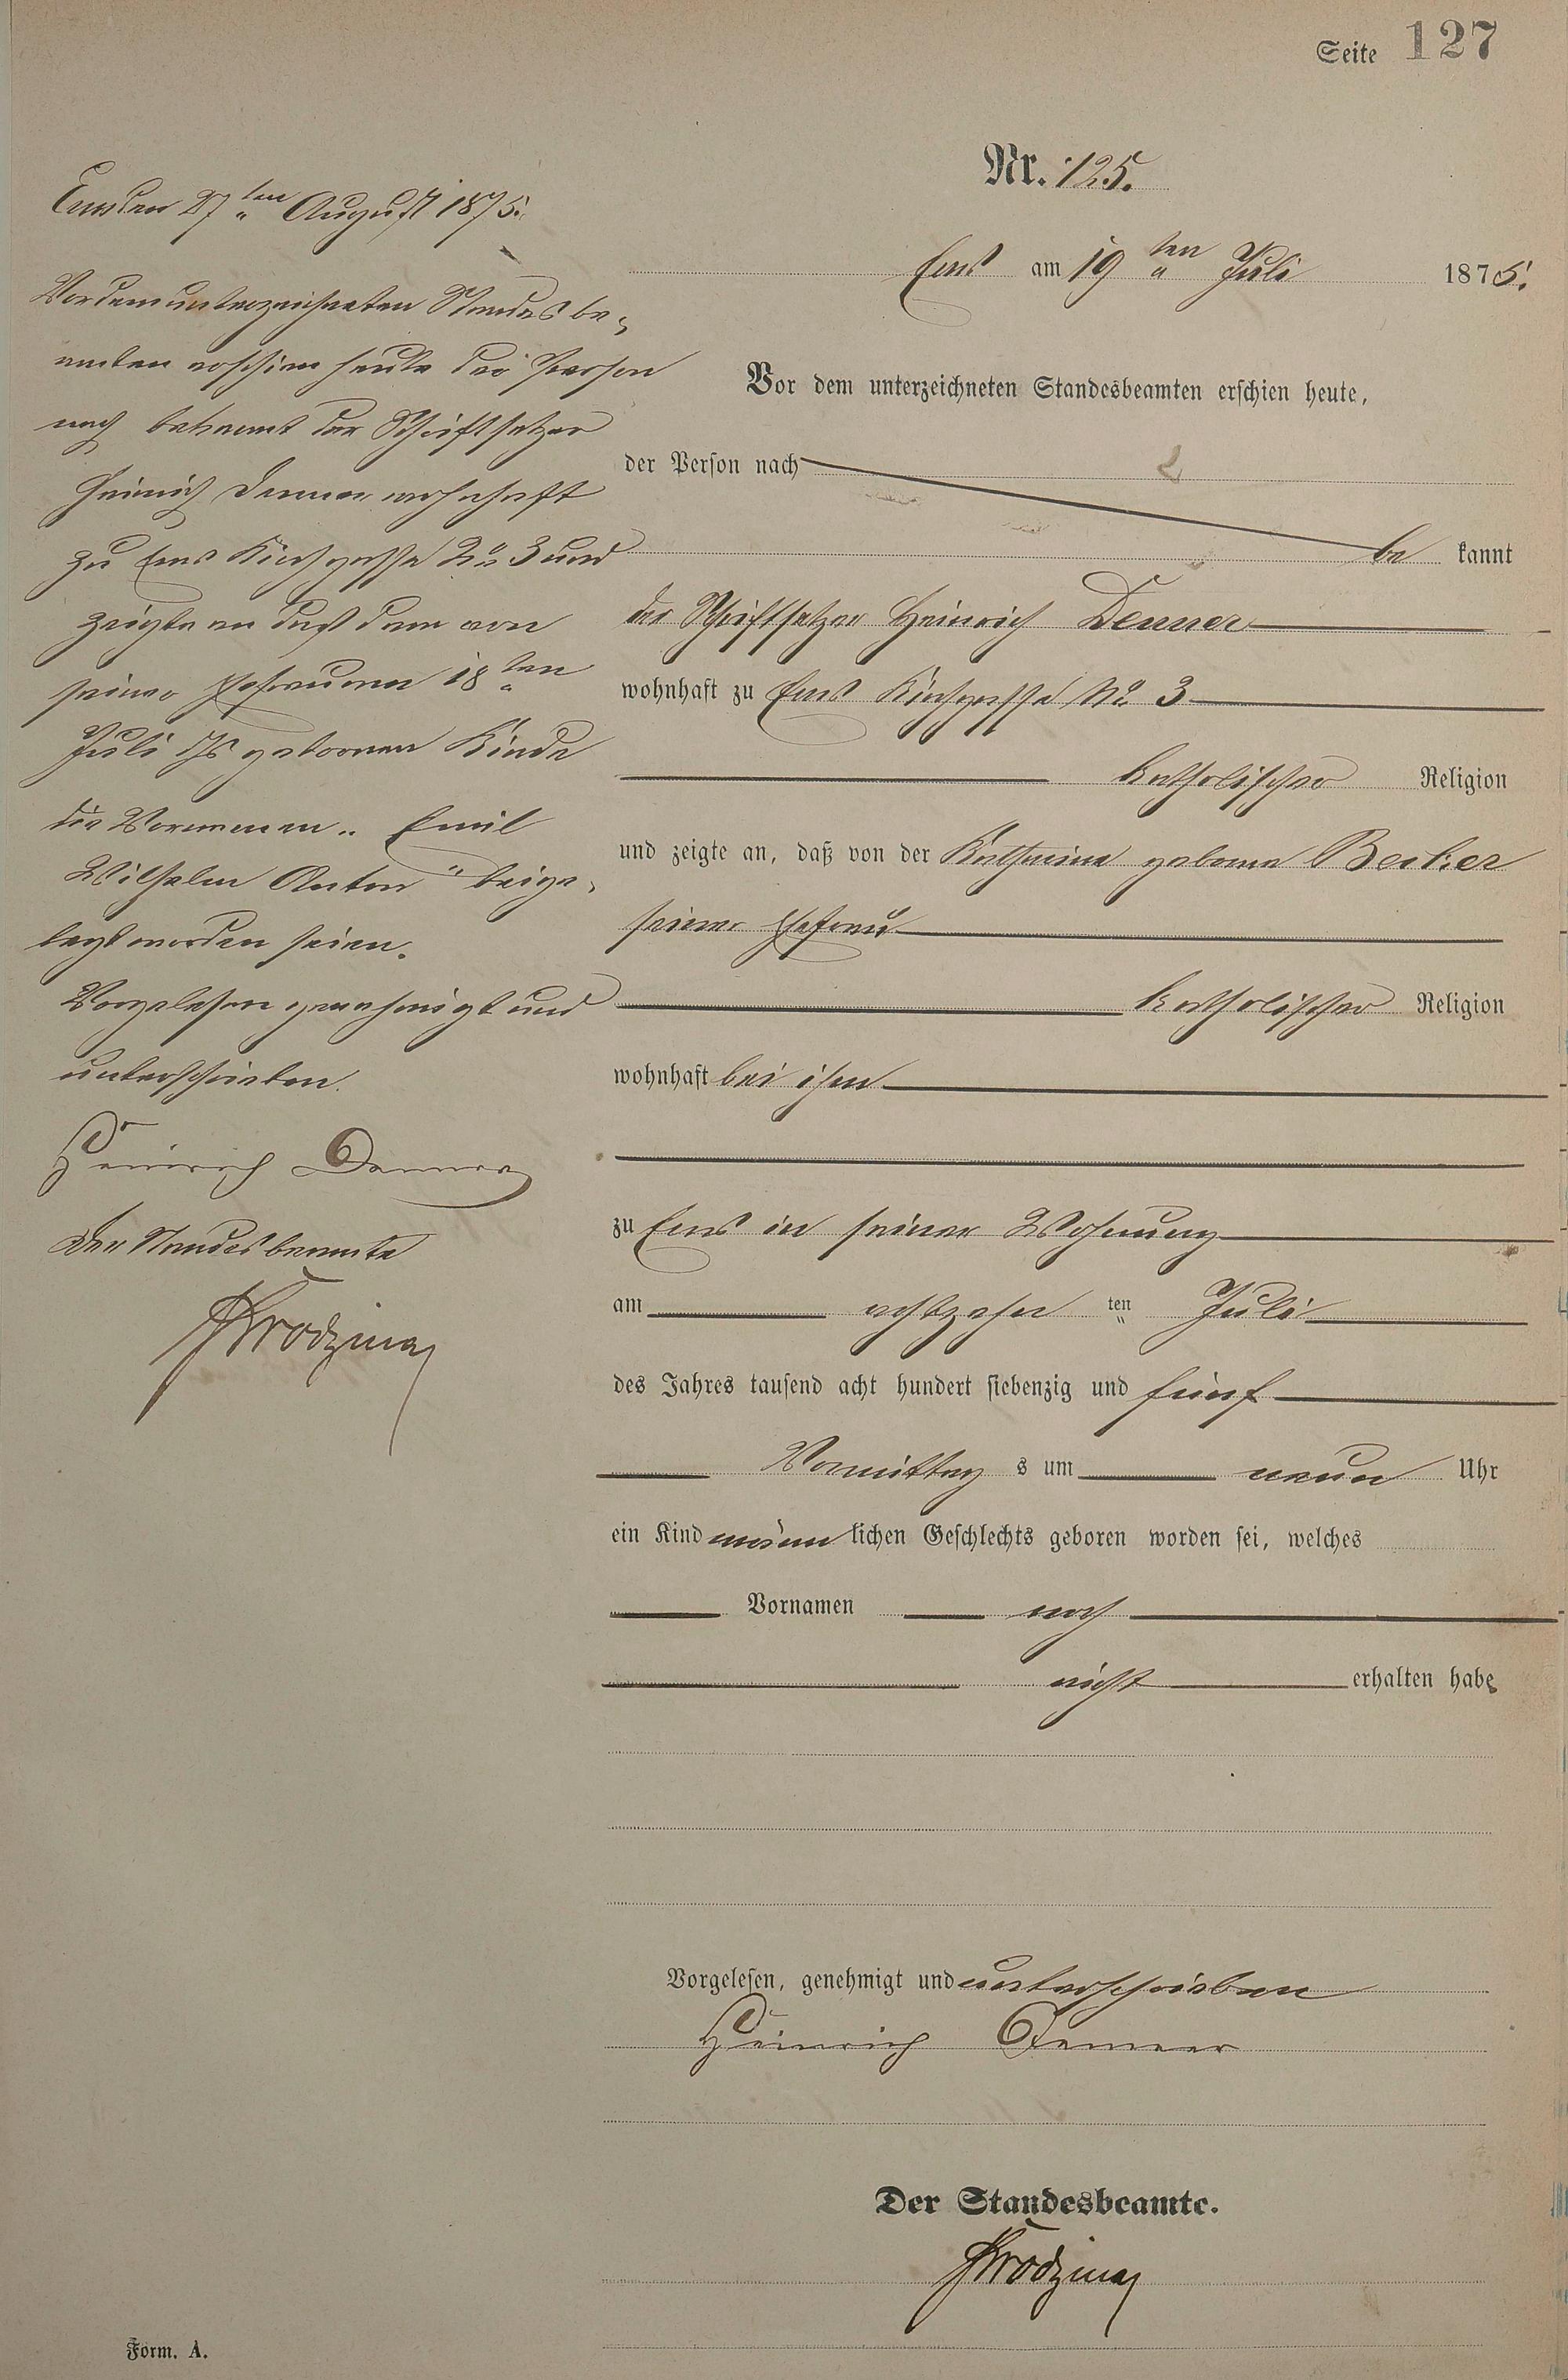 Seite 127
Nr. 125.
Ems am 19 ten Juli 1875.
Vor dem unterzeichneten Standesbeamten erschien heute,
der Person nach
be kannt
der Schriftsetzer Heinrich Denner
wohnhaft zu Ems Kirchgasse No 3
katholischer Religion
und zeigte an, daß von der Katharina geborene Becker
seiner Ehefrau
katholischer Religion
wohnhaft bei ihm
zu Ems in seiner Wohnung
am achtzehn ten Juli
des Jahres tausend acht hundert siebenzig und fünf
Vormittag s um neun Uhr
ein Kind männ lichen Geschlechts geboren worden sei, welches
Vornamen noch
nicht erhalten habe
Vorgelesen, genehmigt und unterschrieben
Heinrich Denner
Der Standesbeamte.
Form. A.
Ems den 27 ten August 1875.
Vor dem unterzeichneten Standesbe-
amten erschien heute der Person
nach bekannt der Schriftsetzer
Heinrich Denner wohnhaft
zu Ems Kirchgasse No 3 und
zeigte an daß dem von
seiner Ehefrau am 18 ten
Juli d Js geborenen Kinde
die Vornamen „ Emil
Wilhelm Anton " beige-
legt worden seien.
Vorgelesen genehmigt und
unterschrieben.
Heinrich Denner
Der Standesbeamte